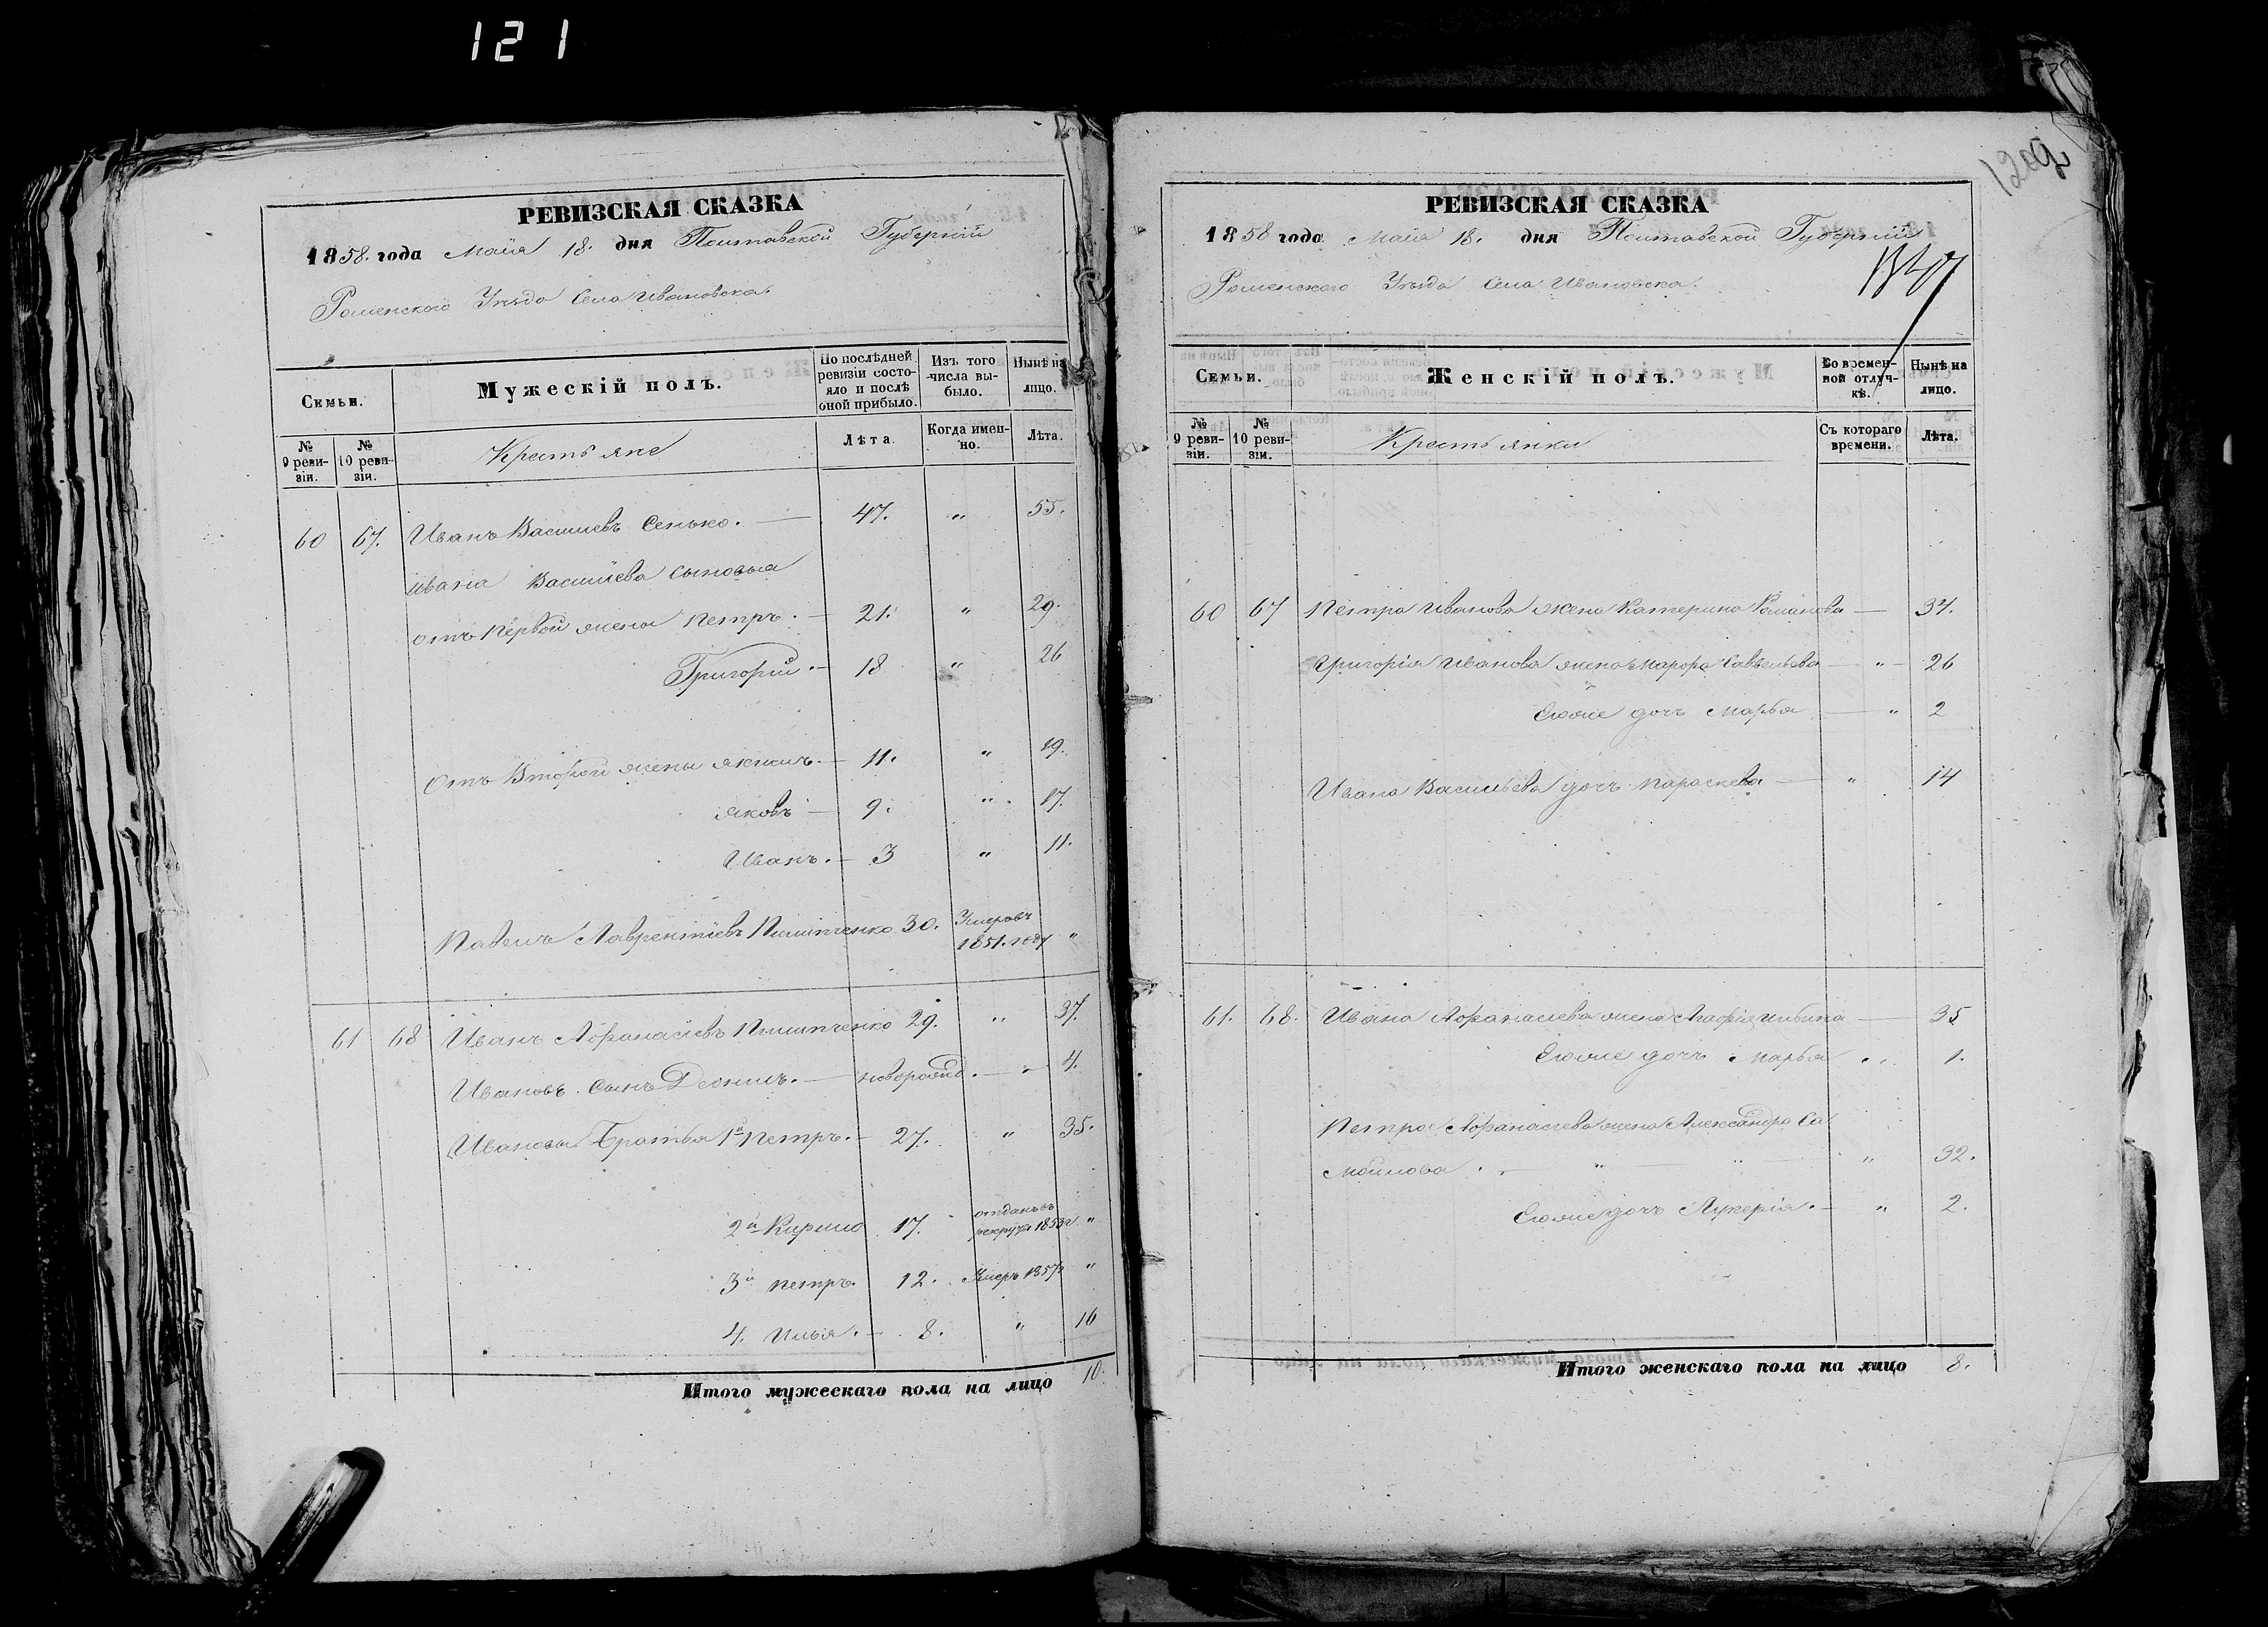 121
РЕВИЗСКАЯ СКАЗКА
1858. года Маія 18. дня Полтавской Губерніи
Роменского Уѣзда Села Ивановска.
Семьи.
Мужескій полъ.
По послѣдней ревизіи состояло и послѣ оной прибыло.
Изъ того числа выбыло.
Нынѣ на лицо.
№ 9 ревизіи.
№ 10 ревизіи.
Крестьяне
Лѣта.
Когда именно.
Лѣта.
60 67. Иванъ Васильевъ Сенько. — 47. „ 55.
Ивана Васильева сыновья
отъ первой жены Петръ. — 21. „ 29.
Григорій. — 18 „ 26
Отъ Второй жены Якимъ. — 11. „ 19.
Яковъ — 9. „ 17.
Иванъ. — 3 „ 11.
Павелъ Лаврентіевъ 30. Умеръ въ 1851. году „
61 68 Иванъ Афанасіевъ 29. „ 37.
Ивановъ сынъ — новорожд. — „ — 4.
Ивановы Братья 1й Петръ. — 27. „ 35.
2й Кирило 17. отданъ въ рекруты 1853г. „
3й Петръ. 12. Умеръ 1857г „
4. Илья. — 8. „ 16
Итого мужескаго пола на лицо 10.
1209
РЕВИЗСКАЯ СКАЗКА
1858 года Маія 18. дня Полтавской Губерніи
Роменского Уѣзда Села Ивановска.
Семьи.
Женскій полъ.
Во временной отлучкѣ.
Нынѣ на лицо.
№ 9 ревизіи.
№ 10 ревизіи.
Крестьянки
Съ котораго времени.
Лѣта.
60 67 Петра Иванова жена Катерина Романова — 34.
Григорія Иванова жена Савельева — „ — 26
Еюже дочь Марья — „ 2
Ивана Васильева дочь Параскева — „ 14
61. 68. Ивана Афанасіева жена Агафія Ильина — 35
Еюже дочь Марья „ 1.
Петра Афанасіева жена Александра Са
мойлова. — „ — „ — „ 32.
Еюже дочь Лукерія. — „ 2.
Итого женскаго пола на лицо 8.